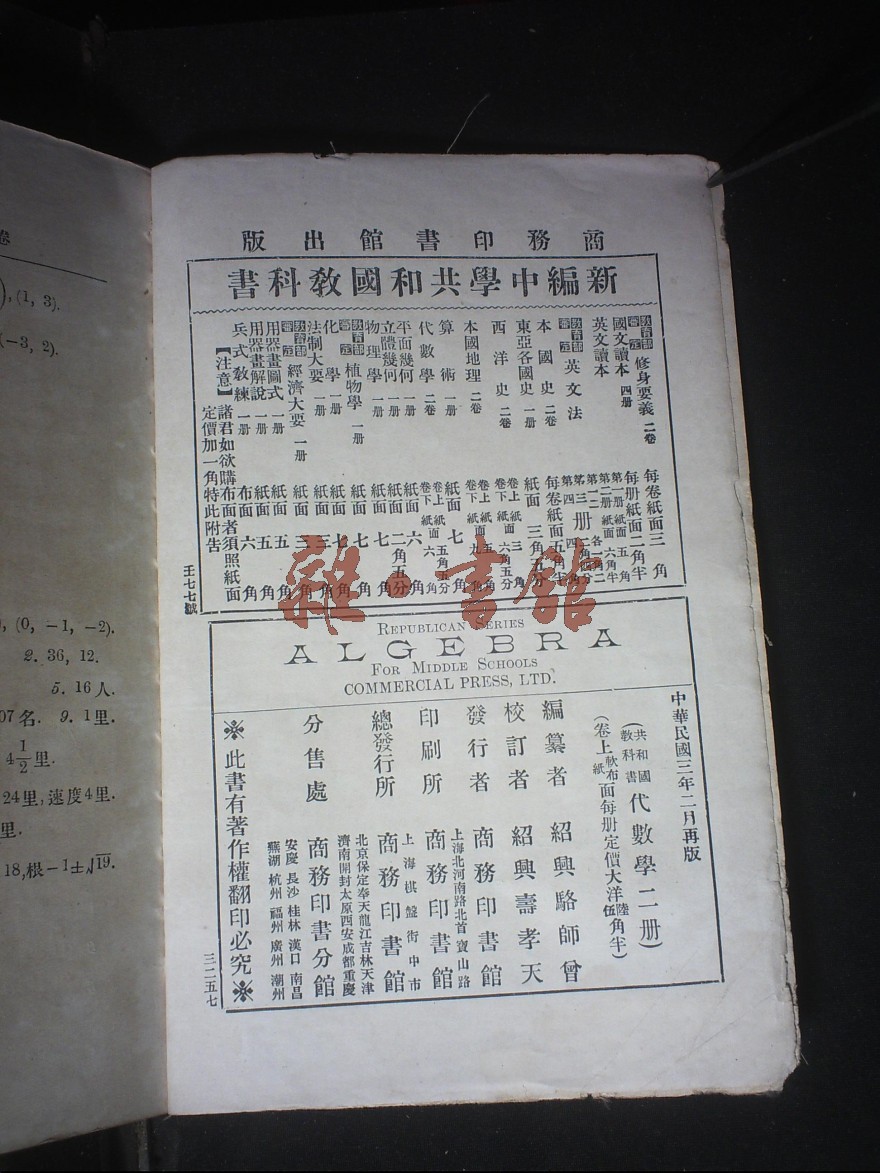 卷
),(1, 3).
(−3, 2).
, (0, −1, −2).
2. 36, 12.
5. 16人.
07名. 9. 1里.
4 1/2 里.
24里,速度4里.
里.
18,根−1±√19.
商務印書館出版
新編中學共和國教科書
教育部審定 修身要義 二卷 每卷紙面三角
國文讀本 四册 每册紙面二角半
英文讀本
教育部審定 英文法
本國史 二卷 每卷紙面五角半
東亞各國史 一册 紙面三角五分
西洋史 二卷
本國地理 二卷
算術 一册 紙面七角
代數學 二卷
平面幾何 一册 紙面六角
立體幾何 一册
物理學 一册 紙面七角
教育部審定 植物學 一册 紙面七角
化學 一册 紙面七角
法制大要 一册 紙面三角
教育部審定 經濟大要 一册 紙面三角
用器畫圖式 一册 紙面五角
用器畫解說 一册 紙面五角
兵式教練 一册 布面六角
【注意】諸君如欲購布面者須照紙面
定價加一角特此附告
壬七七號
雜·書館
REPUBLICAN SERIES
ALGEBRA
FOR MIDDLE SCHOOLS
COMMERCIAL PRESS, LTD.
中華民國三年二月再版
(共和國教科書 代數學二册)
(卷上軟布紙面每册定價大洋陸伍角半)
編纂者 紹興駱師曾
校訂者 紹興壽孝天
發行者 商務印書館
上海北河南路北首寶山路
印刷所 商務印書館
上海棋盤街中市
總發行所 商務印書館
北京保定奉天龍江吉林天津
濟南開封太原西安成都重慶
分售處 商務印書分館
安慶長沙桂林漢口南昌
蕪湖杭州福州廣州潮州
※此書有著作權翻印必究※
三二五七